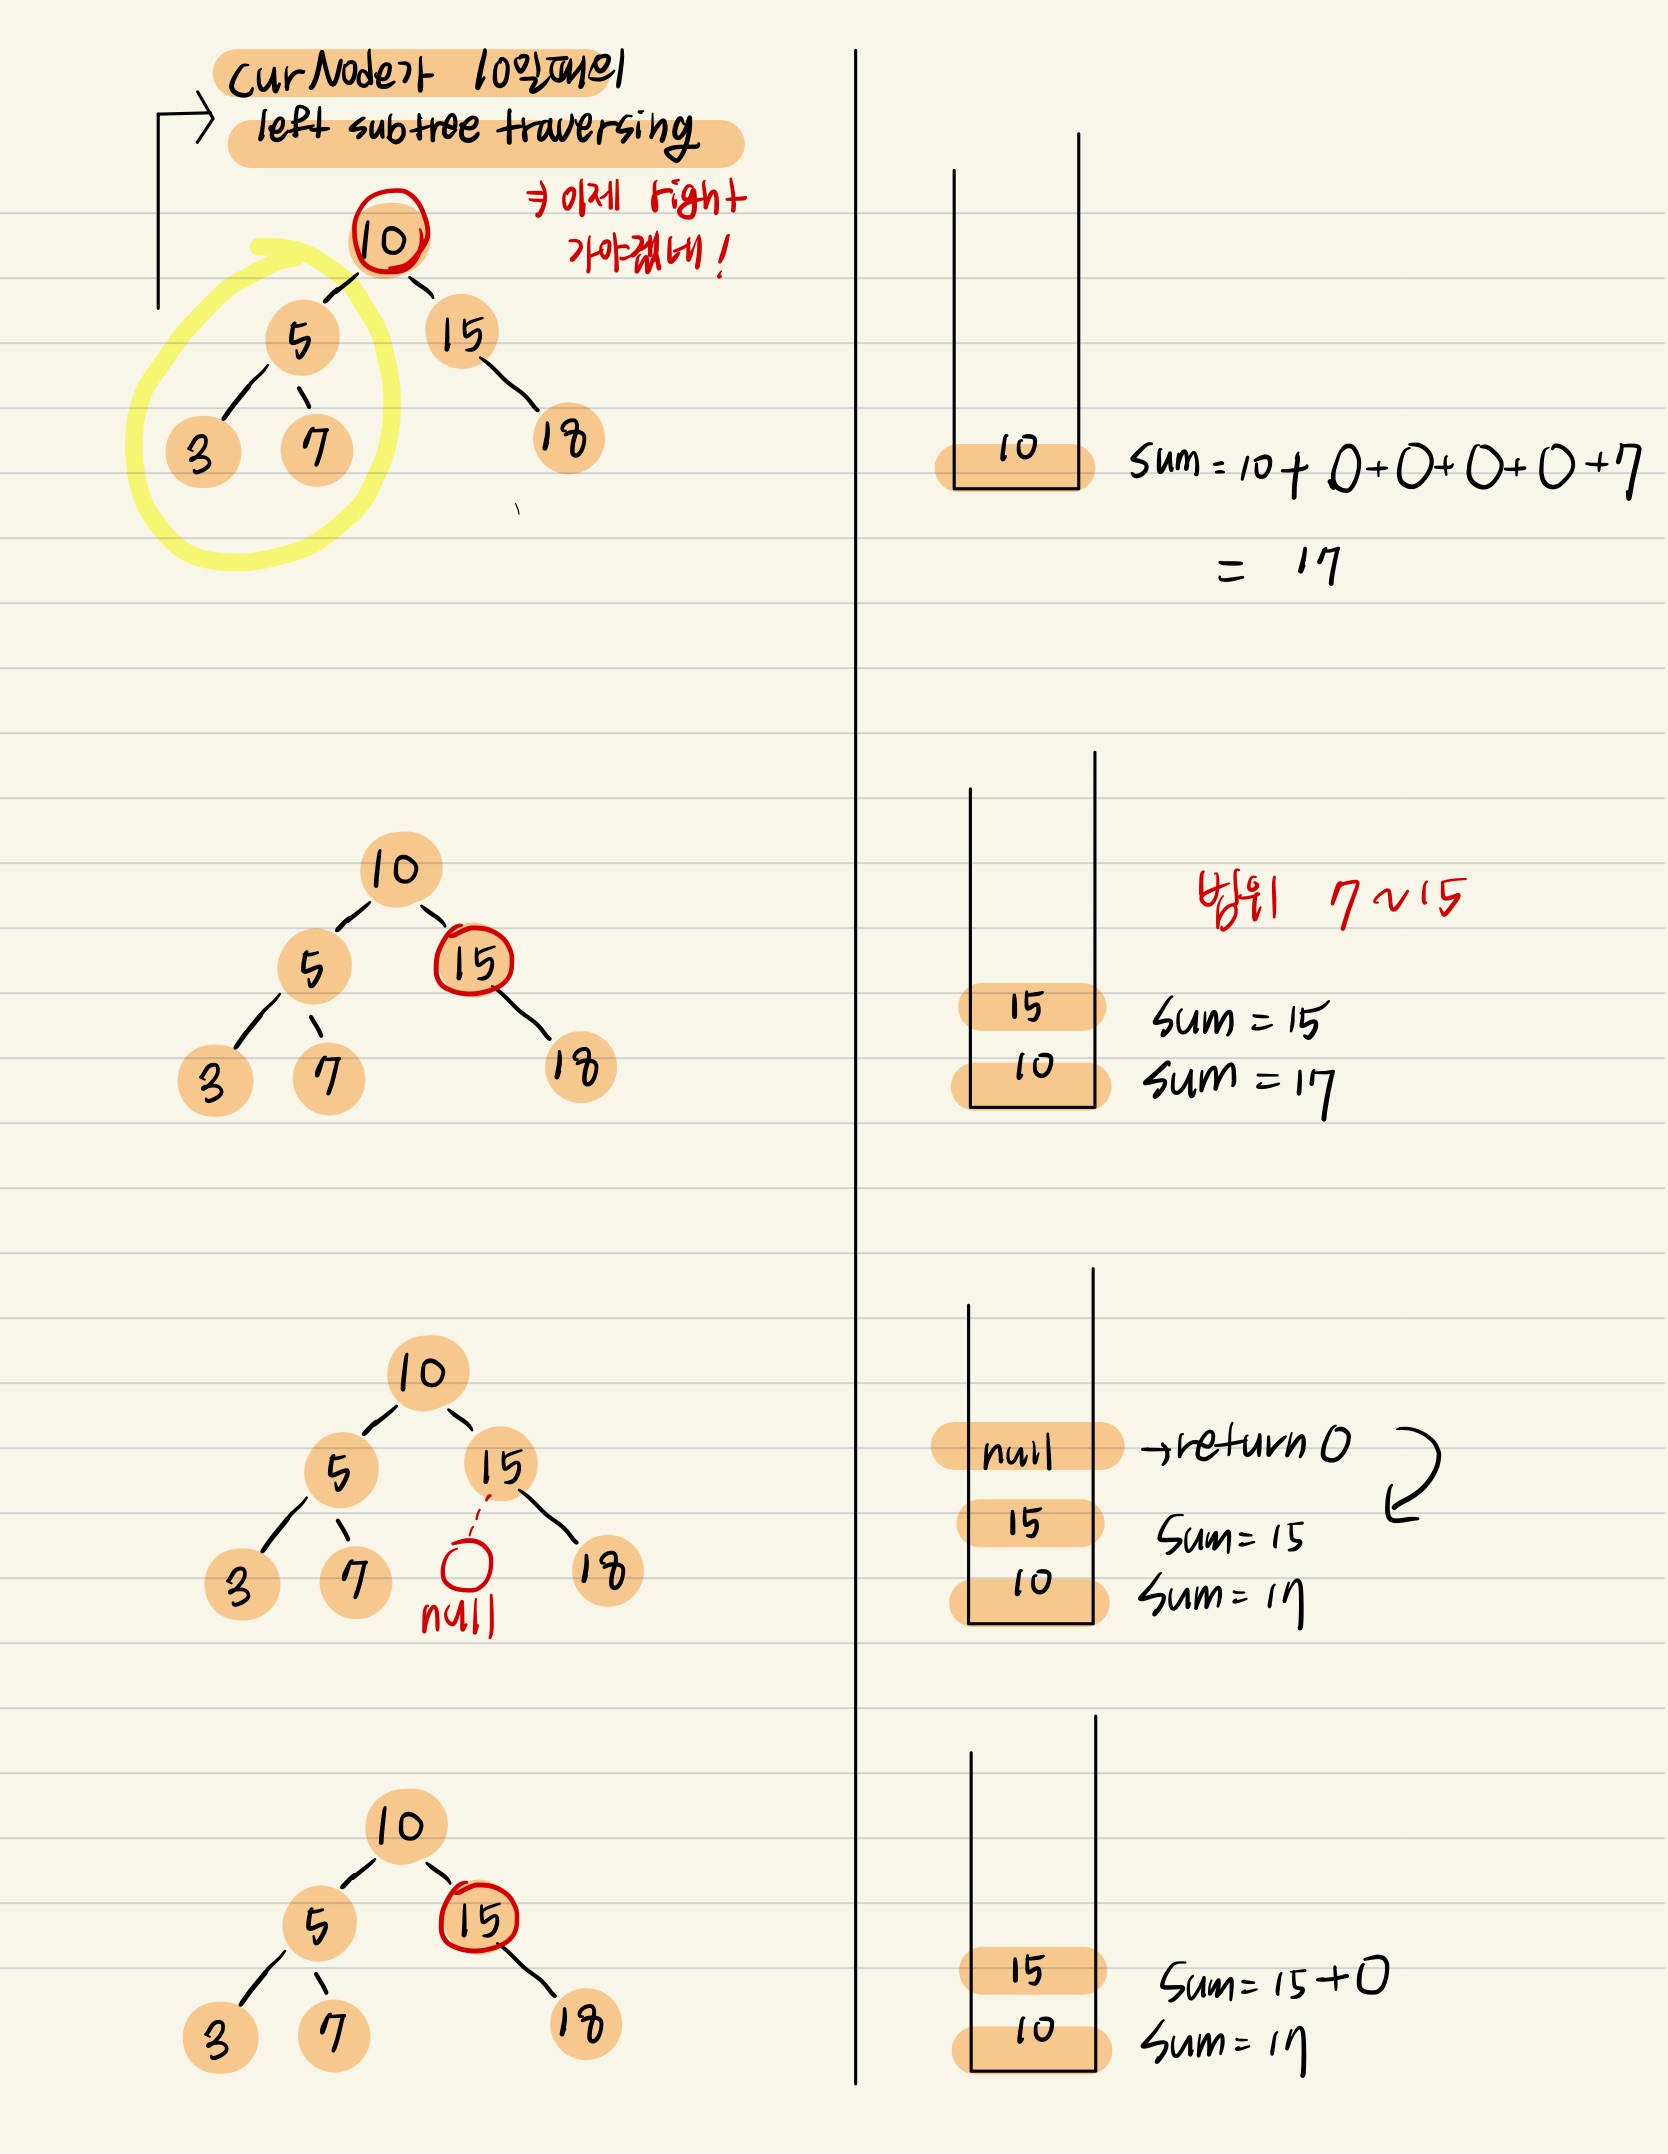 curNode가 10일때의
left subtree traversing
⇒ 이제 right
가야겠네!
10
5
15
3
7
18
10
sum = 10 + 0 + 0 + 0 + 0 + 7
= 17
10
5
15
3
7
18
범위 7 ~ 15
15
sum = 15
10
sum = 17
10
5
15
3
7
18
null
null
→ return 0
15
sum = 15
10
sum = 17
10
5
15
3
7
18
15
sum = 15 + 0
10
sum = 17